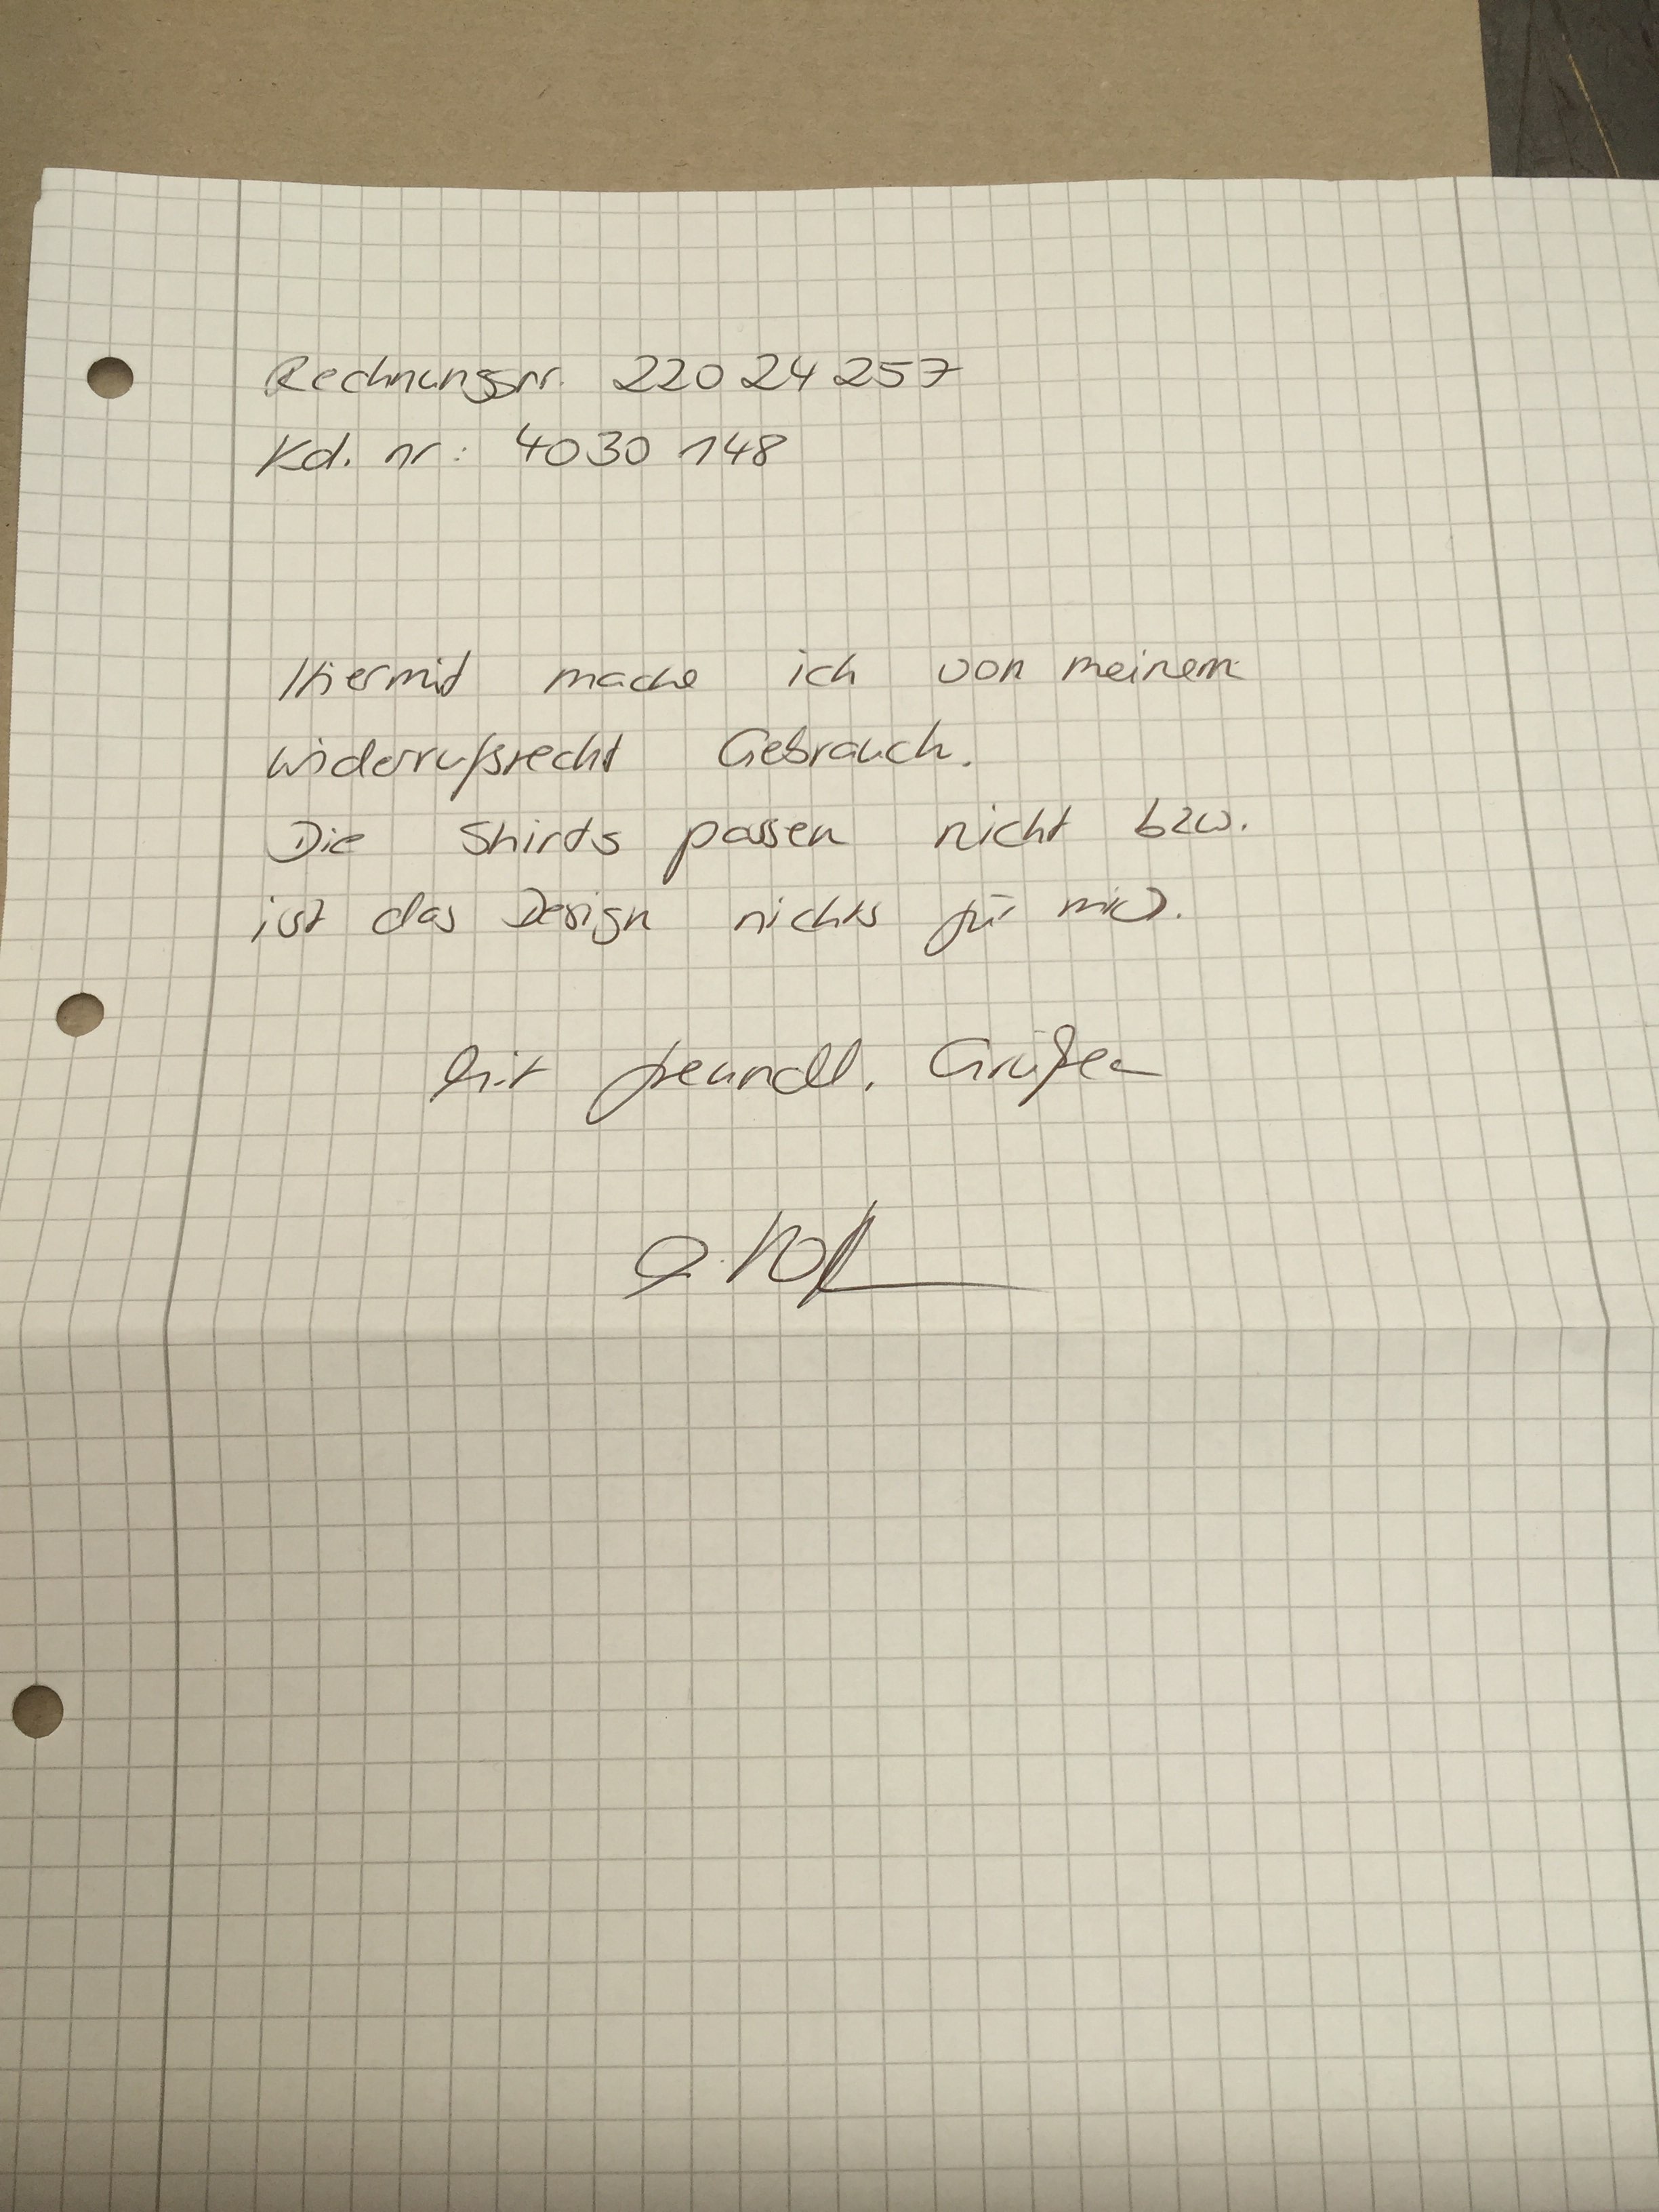 Rechnungsnr. 220 24 257
Kd. nr: 4030 148
Hiermit mache ich von meinem
Widerrufsrecht Gebrauch.
Die Shirts passen nicht bzw.
ist das Design nichts für mich.
Mit freundl. Grüßen